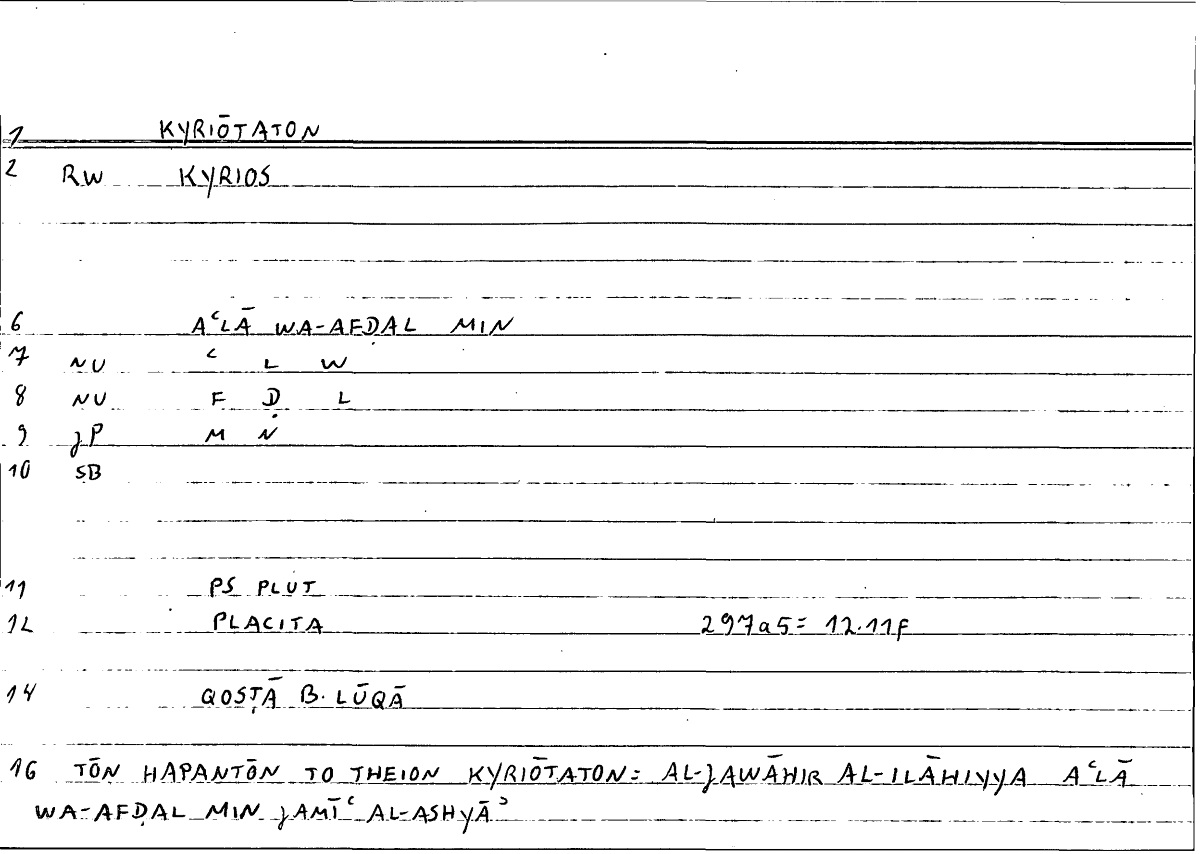 1 KYRIŌTATON
2 RW KYRIOS
6 AʿLĀ WA-AFḌAL MIN
7 NU ʿ L W
8 NU F Ḍ L
9 JP M N
10 SB
11 PS PLUT
12 PLACITA 297a5= 12.11f
14 QOSṬĀ B. LŪQĀ
16 TŌN HAPANTŌN TO THEION KYRIŌTATON= AL-JAWĀHIR AL-ILĀHIYYA AʿLĀ
WA-AFḌAL MIN JAMĪʿ AL-ASHYĀʾ